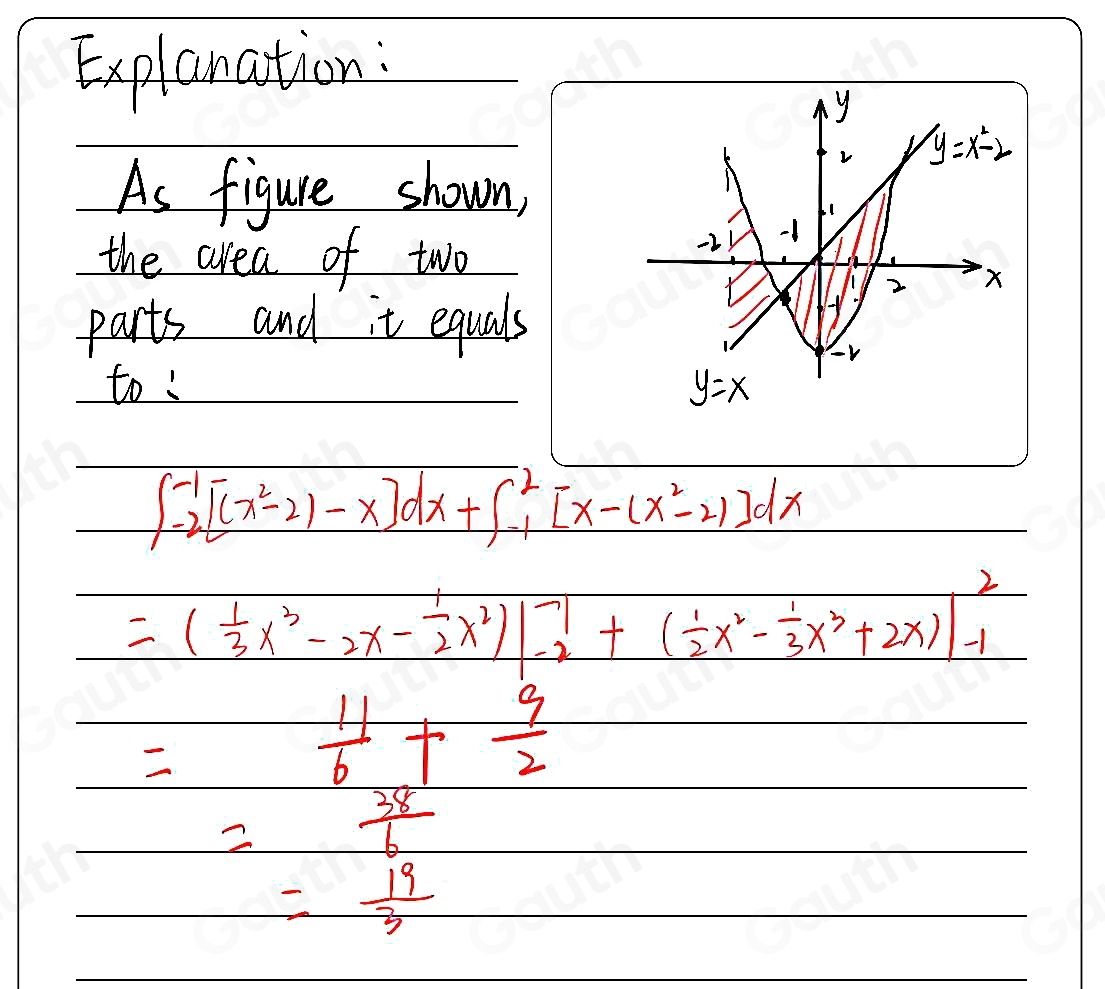 Explanation:
As figure shown,
the area of two
parts and it equals
to:
y
2
y=x²-2
1
-2
-1
1
2
x
-1
-2
y=x
∫₋₂⁻¹[(x²-2)-x]dx+∫₋₁²[x-(x²-2)]dx
= (1/3 x³-2x-1/2 x²)|₋₂⁻¹ + (1/2 x²-1/3 x³+2x)|₋₁²
= 11/6 + 9/2
= 38/6
= 19/3
Gauth